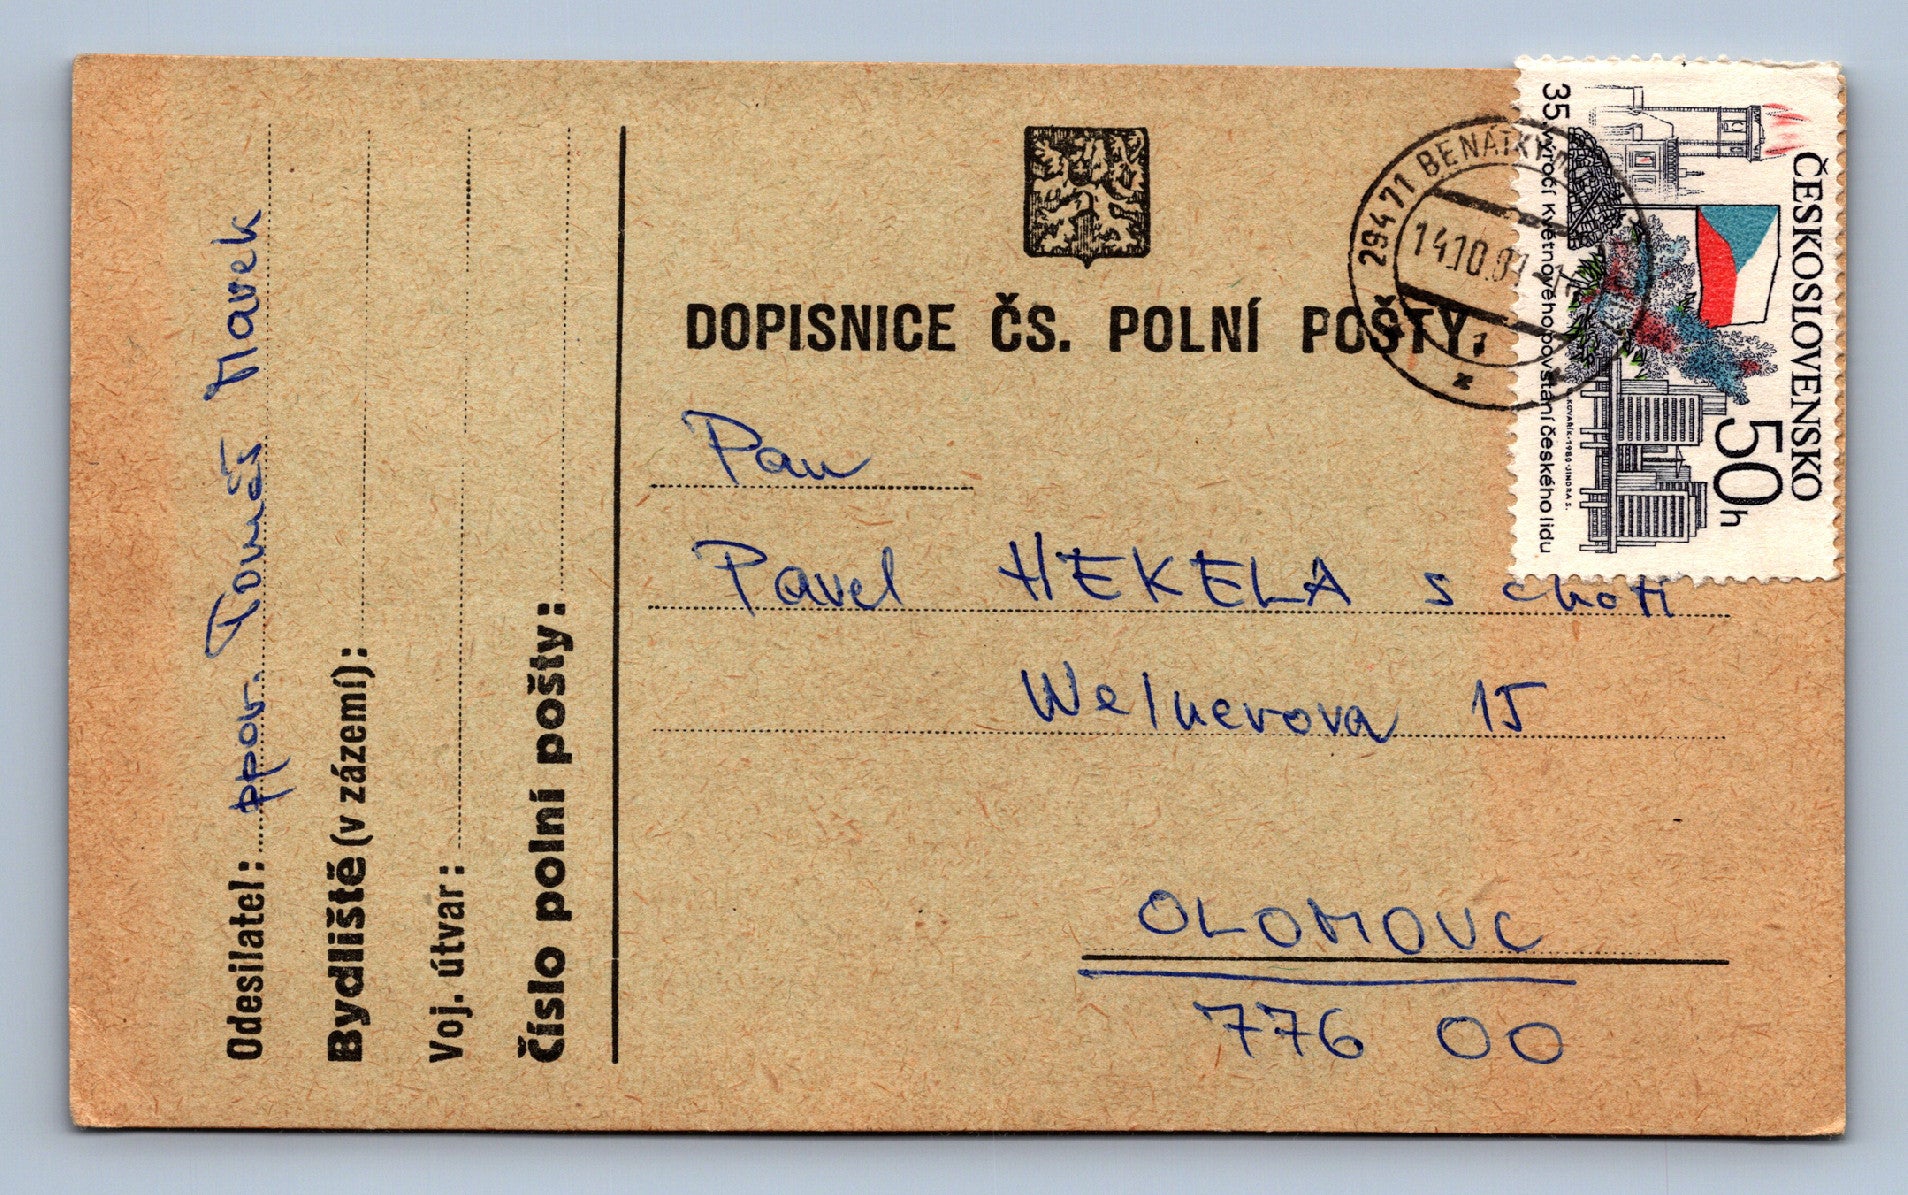 Odesilatel: ppor. Tomáš Marek
Bydliště (v zázemí):
Voj. útvar:
Číslo polní pošty:
DOPISNICE ČS. POLNÍ POŠTY
Pan
Pavel HEKELA s chotí
Welnerova 15
OLOMOUC
776 00
294 71 BENÁTKY
14.10.81
1
z
ČESKOSLOVENSKO
50h
35. výročí Květnového povstání českého lidu
KOVAŘÍK-1980-JINDRA S.